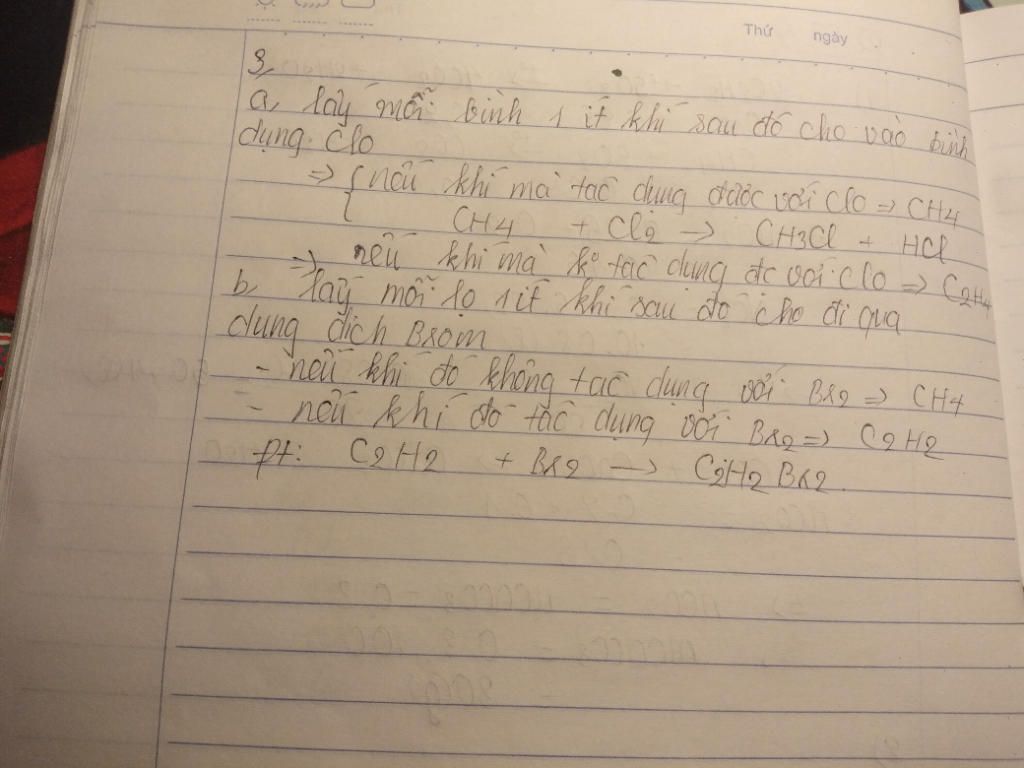 Thứ ngày
3,
a, lấy mỗi bình 1 ít khí sau đó cho vào bình
dụng Clo
=> { nếu khí mà tác dụng được với Clo => CH4
CH4 + Cl2 -> CH3Cl + HCl
=> nếu khí mà ko tác dụng đc với Clo => C2H4
b, lấy mỗi lọ 1 ít khí sau đó cho đi qua
dung dịch Brom
- nếu khí đó không tác dụng với Br2 => CH4
- nếu khí đó tác dụng với Br2 => C2H2
pt: C2H2 + Br2 -> C2H2Br2.